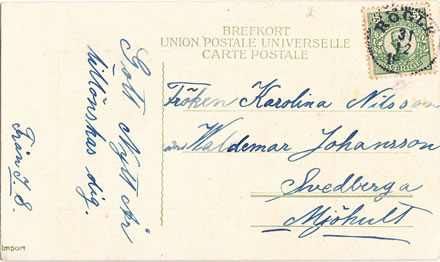 BREFKORT
UNION POSTALE UNIVERSELLE
CARTE POSTALE
Gott Nytt År
tillönskas dig.
Från I. S.
Fröken Karolina Nilsson
Waldemar Johansson
Svedberga
Mjöhult
SVERIGE
31
12
Import